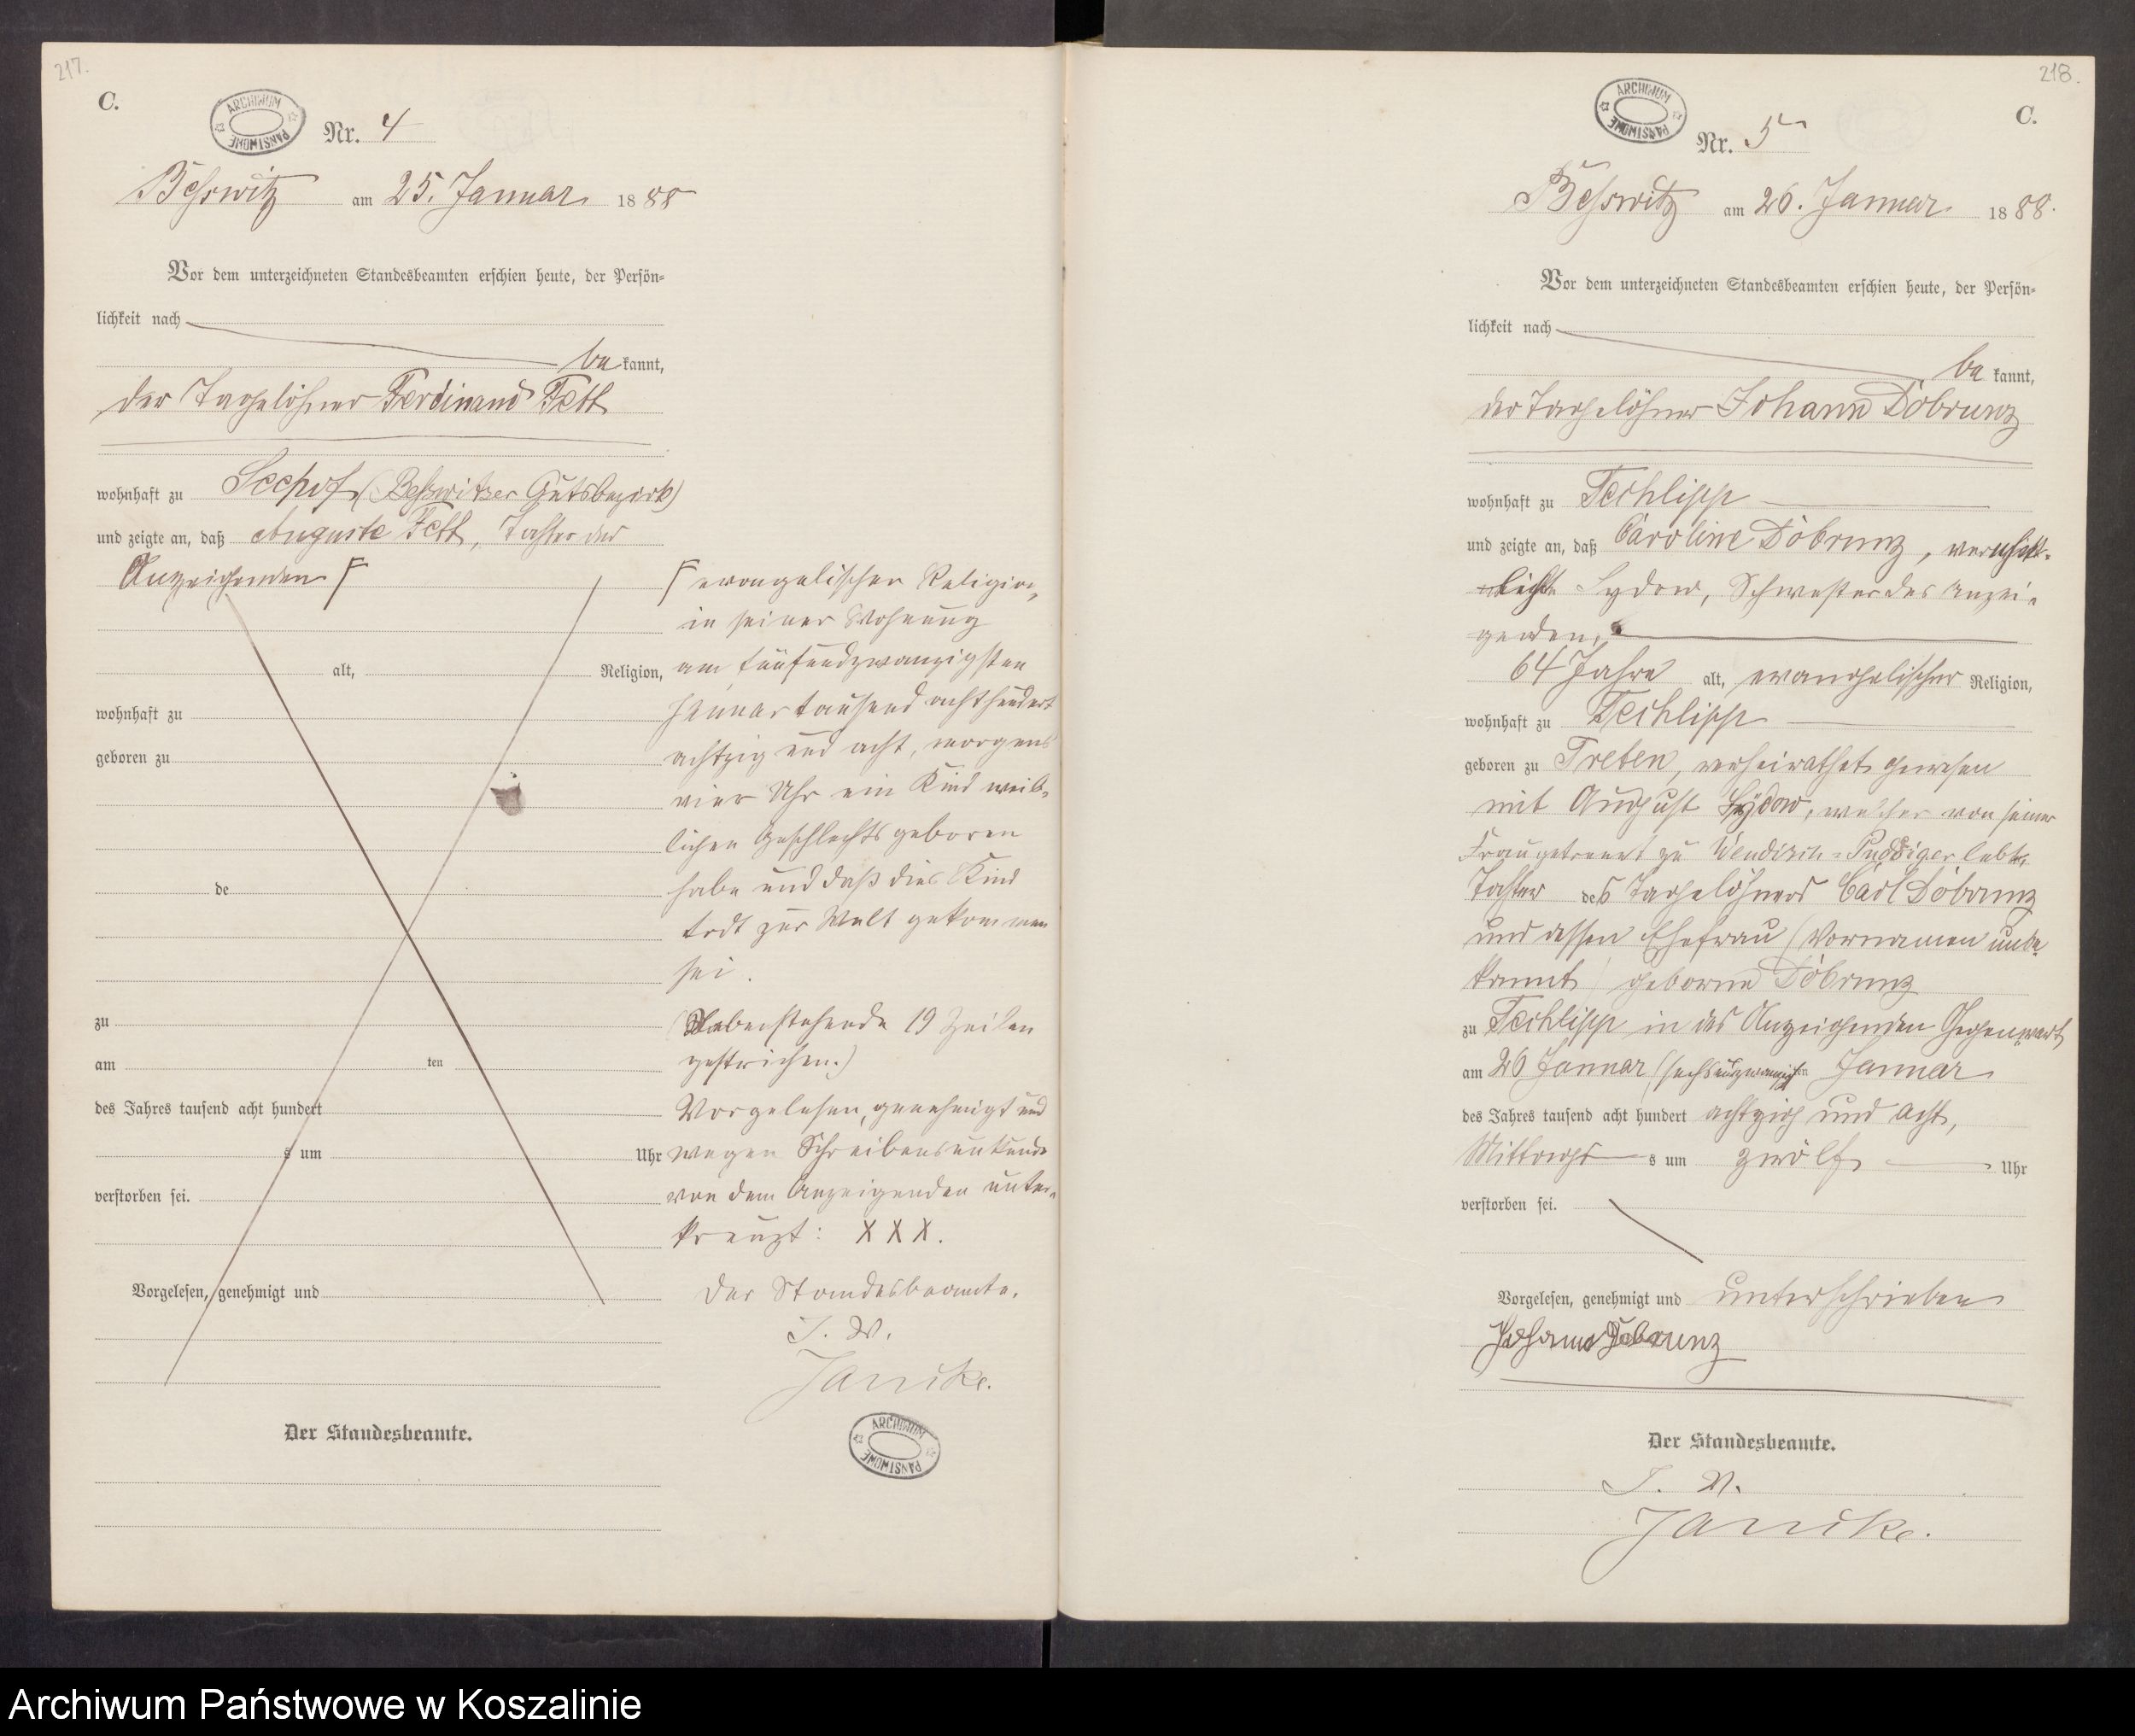 217.
C.
ARCHIWUM PAŃSTWOWE
Nr. 4
Beßwitz am 25. Januar 1888
Vor dem unterzeichneten Standesbeamten erschien heute, der Persön-
lichkeit nach
be kannt,
der Tagelöhner Ferdinand Fett
wohnhaft zu Seehof (Beßwitzer Gutsbezirk)
und zeigte an, daß Auguste Fett, Tochter des
Anzeigenden
alt, Religion,
wohnhaft zu
geboren zu
de
zu
am ten
des Jahres tausend acht hundert
s um Uhr
verstorben sei.
Vorgelesen, genehmigt und
Der Standesbeamte.
evangelischer Religion,
in seiner Wohnung
am fünfundzwanzigsten
Januar tausend achthundert
achtzig und acht, morgens
vier Uhr ein Kind weib-
lichen Geschlechts geboren
habe und daß dies Kind
todt zur Welt gekommen
sei.
(Nebenstehende 19 Zeilen
gestrichen.)
Vorgelesen, genehmigt und
wegen Schreibensunkunde
von dem Anzeigenden unter-
kreuzt: X X X.
Der Standesbeamte.
I. V.
Janike.
ARCHIWUM PAŃSTWOWE
218.
C.
ARCHIWUM PAŃSTWOWE
Nr. 5
Beßwitz am 26. Januar 1888.
Vor dem unterzeichneten Standesbeamten erschien heute, der Persön-
lichkeit nach
be kannt,
der Tagelöhner Johann Döbrunz
wohnhaft zu Techlipp
und zeigte an, daß Caroline Döbrunz, verehe-
licht Sydow, Schwester des Anzei-
genden,
64 Jahre alt, evangelischer Religion,
wohnhaft zu Techlipp
geboren zu Treten, verheirathet gewesen
mit August Sydow, welcher von seiner
Frau getrennt zu Wendisch-Puddiger lebt,
Tochter des Tagelöhners Carl Döbrunz
und dessen Ehefrau (Vornamen unbe-
kannt) geborne Döbrunz
zu Techlipp in des Anzeigenden Gegenwart
am 26 Januar (sechsundzwanzigsten Januar
des Jahres tausend acht hundert achtzig und acht,
Mittags s um zwölf Uhr
verstorben sei.
Vorgelesen, genehmigt und unterschrieben
Johann Döbrunz
Der Standesbeamte.
I. V.
Janike.
Archiwum Państwowe w Koszalinie